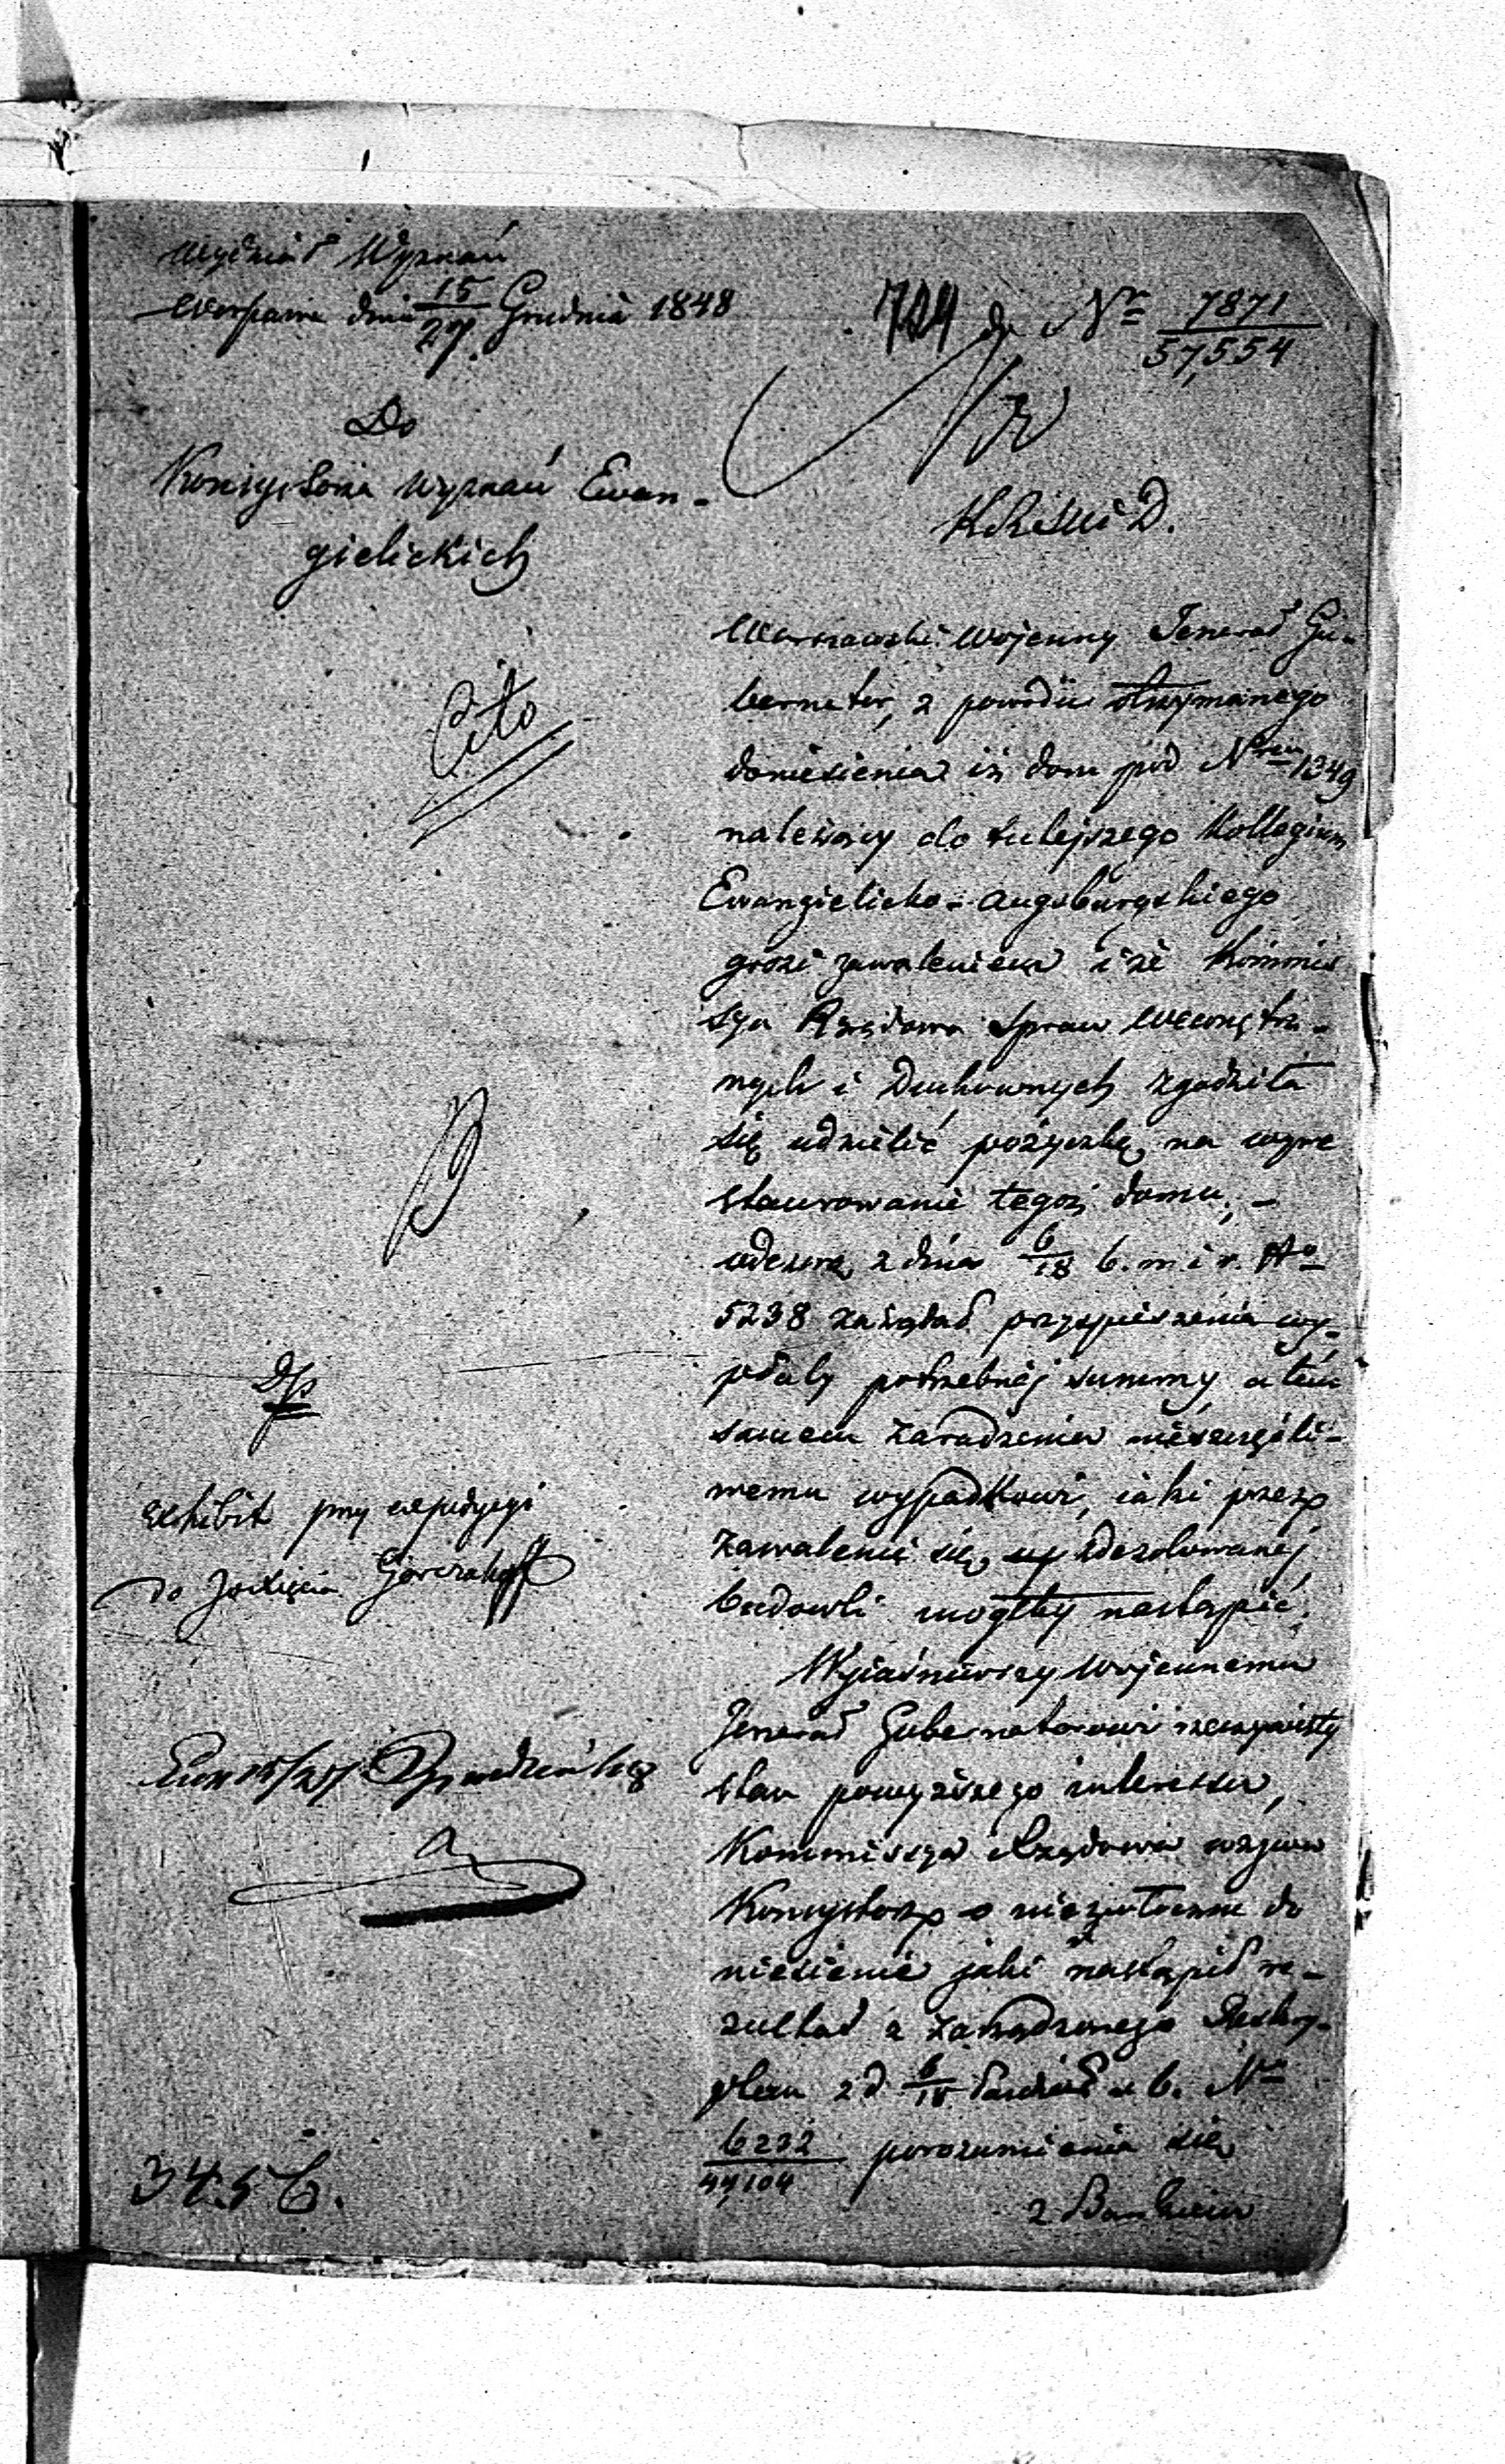 Wydział Wyznań
Warszawa dnia 15/27 Grudnia 1848
do Nr 7871/57,554
Do
Konsystorza Wyznań Ewan-
gielickich
K.R.S.W. i D.
Cito
Warszawski Wojenny Jenerał Gu-
bernator, z powodu otrzymanego
doniesienia iż dom pod Nrem 1349
należący do tutejszego Kollegium
Ewangielicko-Augsburgskiego
grozi zawaleniem i że Kommis
sya Rządowa Spraw Wewnętrz-
nych i Duchownych zgodziła
się udzielić pożyczkę na wyre
staurowanie tegoż domu, -
odezwą z dnia 6/18 b. m. i r. No
5238 zażądał przyspieszenia wy-
płaty potrzebnéj summy, a tém
samem zaradzenia nieszczęśli-
wemu wypadkowi, iaki przez
zawalenie się zdezolowanéj
budowli mógłby nastąpić.
Wyiaśniwszy Wojennemu
Jenerał Gubernatorowi rzeczywisty
stan powyższego interessu,
Kommissya Rządowa wzywa
Konsystorz o niezwłoczne do
niesienie jaki nastąpił re-
zultat z zarządzonego Reskry-
ptem z d. 6/18 b. Nr
6222/44,104 porozumienia się
z Bankiem
exhibit przy expedycyi
do Xięcia Gorczakoff
345 6.